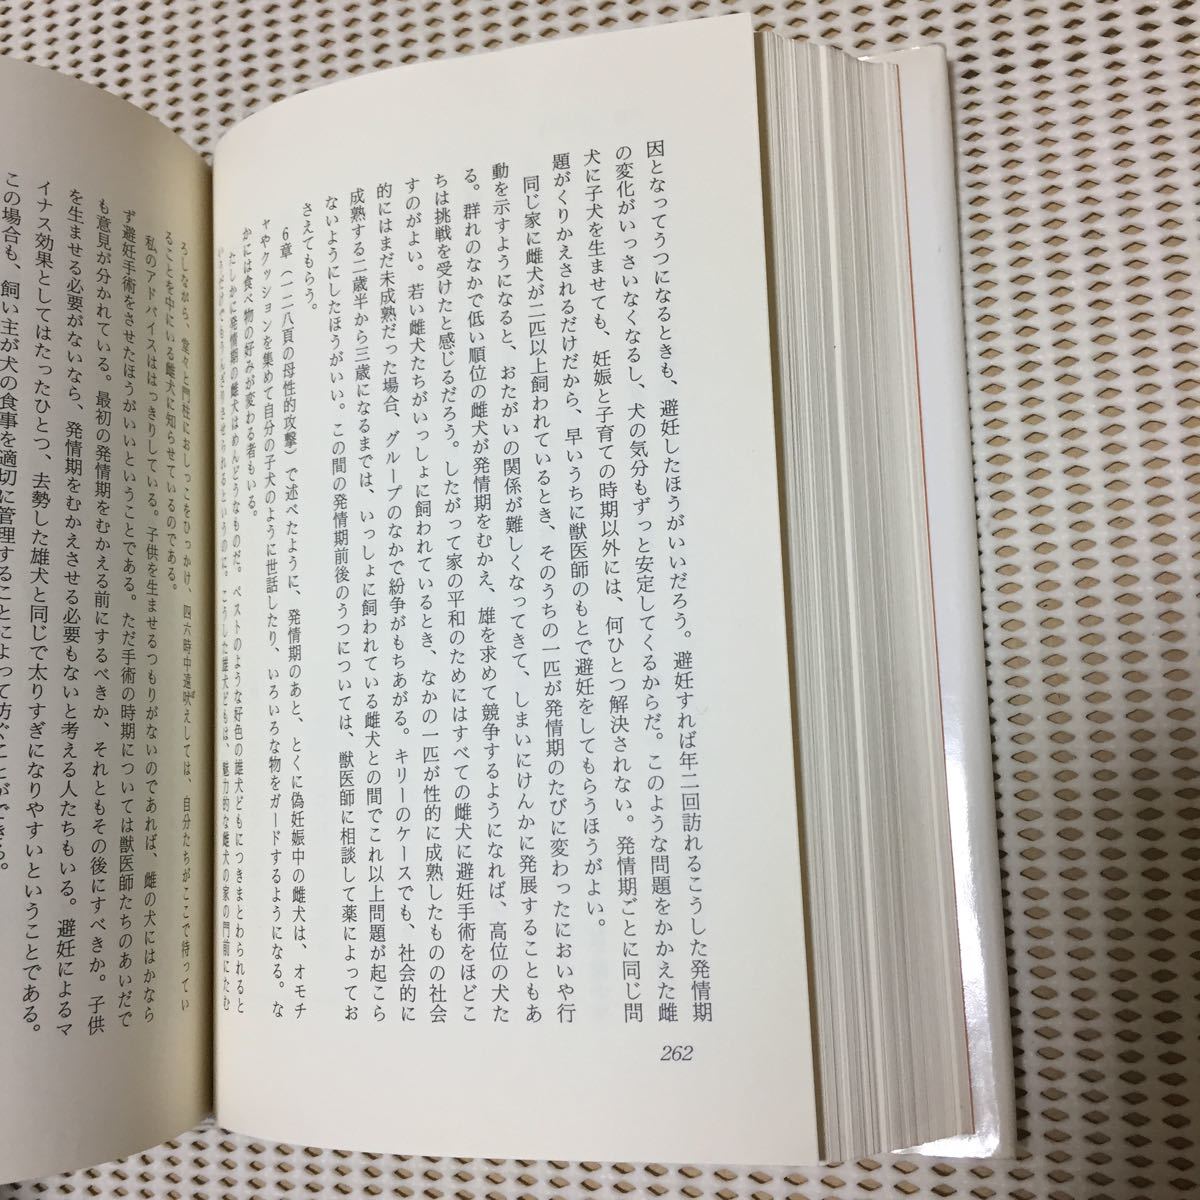 因となってうつになるときも、避妊したほうがいいだろう。避妊すれば年二回訪れるこうした発情期
の変化がいっさいなくなるし、犬の気分もずっと安定してくるからだ。このような問題をかかえた雌
犬に子犬を生ませても、妊娠と子育ての時期以外には、何ひとつ解決されない。発情期ごとに同じ問
題がくりかえされるだけだから、早いうちに獣医師のもとで避妊をしてもらうほうがよい。
同じ家に雌犬が二匹以上飼われているとき、そのうちの一匹が発情期のたびに変わったにおいや行
動を示すようになると、おたがいの関係が難しくなってきて、しまいにけんかに発展することもあ
る。群れのなかで低い順位の雌犬が発情期をむかえ、雄を求めて競争するようになれば、高位の犬た
ちは挑戦を受けたと感じるだろう。したがって家の平和のためにはすべての雌犬に避妊手術をほどこ
すのがよい。若い雌犬たちがいっしょに飼われているとき、なかの一匹が性的に成熟したものの社会
的にはまだ未成熟だった場合、グループのなかで紛争がもちあがる。キリーのケースでも、社会的に
成熟する二歳半から三歳になるまでは、いっしょに飼われている雌犬との間でこれ以上問題が起こら
ないようにしたほうがいい。この間の発情期前後のうつについては、獣医師に相談して薬によってお
さえてもらう。
6章（一二八頁の母性的攻撃）で述べたように、発情期のあと、とくに偽妊娠中の雌犬は、オモチ
ャやクッションを集めて自分の子犬のように世話したり、いろいろな物をガードするようになる。な
かには食べ物の好みが変わる者もいる。
たしかに発情期の雌犬はめんどうなものだ。ベストのような好色の雄犬どもにつきまとわられると
262
ろしながら、堂々と門柱におしっこをひっかけ、四六時中遠吠えしては、自分たちがここで待ってい
ることを中にいる雌犬に知らせているのである。
私のアドバイスははっきりしている。子供を生ませるつもりがないのであれば、雌の犬にはかなら
ず避妊手術をさせたほうがいいということである。ただ手術の時期については獣医師たちのあいだで
も意見が分かれている。最初の発情期をむかえる前にするべきか、それともその後にすべきか。子供
を生ませる必要がないなら、発情期をむかえさせる必要もないと考える人たちもいる。避妊によるマ
イナス効果としてはたったひとつ、去勢した雄犬と同じで太りすぎになりやすいということである。
この場合も、飼い主が犬の食事を適切に管理することによって防ぐことができる。